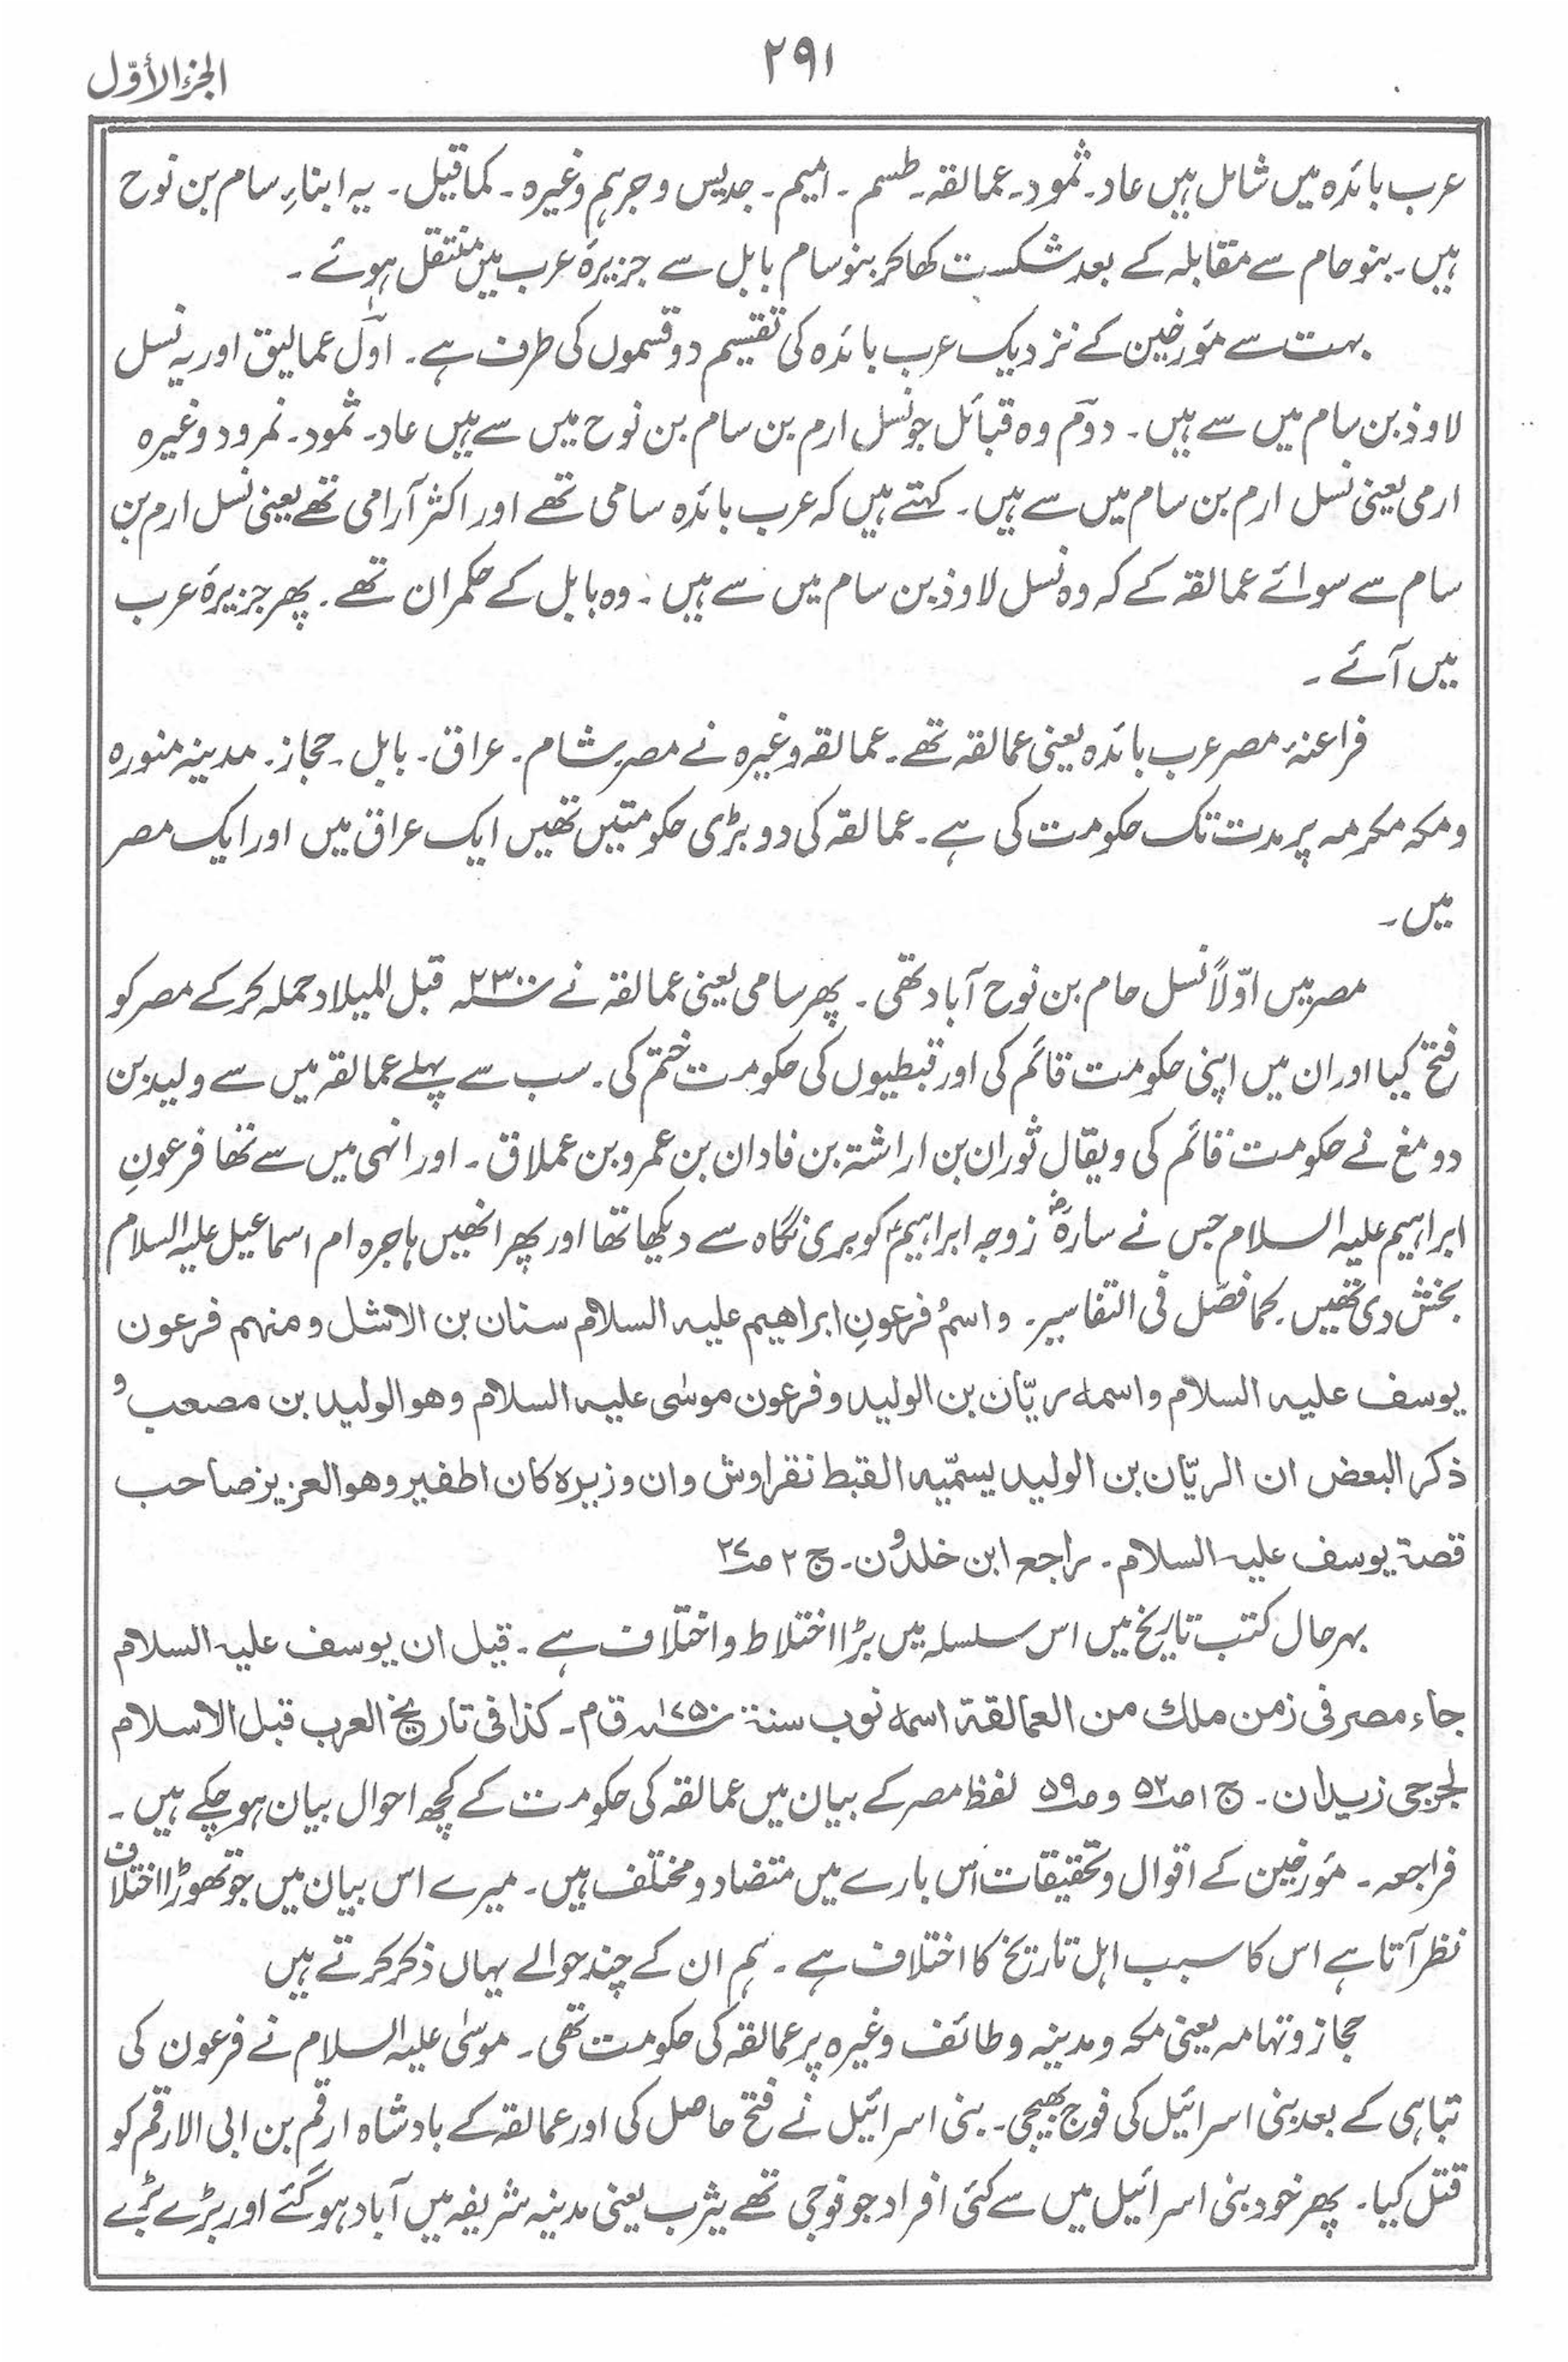 ۲۹۱
الجزء الأوّل
عرب بائدہ میں شامل ہیں عاد۔ ثمود۔ عمالقہ۔ طسم۔ امیم۔ جدیس و جرہم وغیرہ۔ کما قیل۔ یہ ابناءِ سام بن نوح
ہیں۔ بنو حام سے مقابلہ کے بعد شکست کھا کر بنو سام بابل سے جزیرۂ عرب میں منتقل ہوئے۔
بہت سے مؤرخین کے نزدیک عرب بائدہ کی تقسیم دو قسموں کی طرف ہے۔ اوّل عمالیق اور یہ نسل
لاوذ بن سام میں سے ہیں۔ دوّم وہ قبائل جو نسل ارم بن سام بن نوح میں سے ہیں عاد۔ ثمود۔ نمرود وغیرہ
ارمی یعنی نسل ارم بن سام میں سے ہیں۔ کہتے ہیں کہ عرب بائدہ سامی تھے اور اکثر آرامی تھے یعنی نسل ارم بن
سام سے سوائے عمالقہ کے کہ وہ نسل لاوذ بن سام میں سے ہیں۔ وہ بابل کے حکمران تھے۔ پھر جزیرۂ عرب
میں آئے۔
فراعنۂ مصر عرب بائدہ یعنی عمالقہ تھے۔ عمالقہ وغیرہ نے مصر۔ شام۔ عراق۔ بابل۔ حجاز۔ مدینہ منورہ
و مکہ مکرمہ پر مدت تک حکومت کی ہے۔ عمالقہ کی دو بڑی حکومتیں تھیں ایک عراق میں اور ایک مصر
میں۔
مصر میں اوّلاً نسل حام بن نوح آباد تھی۔ پھر سامی یعنی عمالقہ نے سنہ ۲۳۰۰ قبل المیلاد حملہ کرکے مصر کو
فتح کیا اور ان میں اپنی حکومت قائم کی اور قبطیوں کی حکومت ختم کی۔ سب سے پہلے عمالقہ میں سے ولید بن
دومغ نے حکومت قائم کی ویقال ثوران بن اراشتہ بن فادان بن عمرو بن عملاق۔ اور انہی میں سے تھا فرعونِ
ابراہیم علیہ السلام جس نے سارہؓ زوجہ ابراہیمؑ کو بری نگاہ سے دیکھا تھا اور پھر انھیں ہاجرہ ام اسماعیل علیہ السلام
بخش دی تھیں۔ کما فصّل فی التفاسیر۔ واسمُ فرعونِ ابراھیم علیہ السلام سنان بن الاشل ومنہم فرعون
یوسف علیہ السلام واسمہ ریّان بن الولید وفرعون موسٰی علیہ السلام وھو الولید بن مصعب و
ذکر البعض ان الریّان بن الولید یسمّیہ القبط نقراوش وان وزیرہ کان اطفیر وھو العزیز صاحب
قصۃ یوسف علیہ السلام۔ راجع ابن خلدون۔ ج ۲ ص۲۷
بہرحال کتب تاریخ میں اس سلسلہ میں بڑا اختلاط و اختلاف ہے۔ قیل ان یوسف علیہ السلام
جاء مصر فی زمن ملک من العمالقۃ اسمہ نوب سنۃ ۱۷۵۰ ق م۔ کذا فی تاریخ العرب قبل الاسلام
لجرجی زیدان۔ ج ۱ ص۵۲ و ص۵۹ لفظ مصر کے بیان میں عمالقہ کی حکومت کے کچھ احوال بیان ہو چکے ہیں۔
فراجعہ۔ مؤرخین کے اقوال و تحقیقات اس بارے میں متضاد و مختلف ہیں۔ میرے اس بیان میں جو تھوڑا اختلاف
نظر آتا ہے اس کا سبب اہل تاریخ کا اختلاف ہے۔ ہم ان کے چند حوالے یہاں ذکر کرتے ہیں
حجاز و تہامہ یعنی مکہ و مدینہ و طائف وغیرہ پر عمالقہ کی حکومت تھی۔ موسیٰ علیہ السلام نے فرعون کی
تباہی کے بعد بنی اسرائیل کی فوج بھیجی۔ بنی اسرائیل نے فتح حاصل کی اور عمالقہ کے بادشاہ ارقم بن ابی الارقم کو
قتل کیا۔ پھر خود بنی اسرائیل میں سے کئی افراد جو فوجی تھے یثرب یعنی مدینہ شریفہ میں آباد ہو گئے اور بڑے بڑے